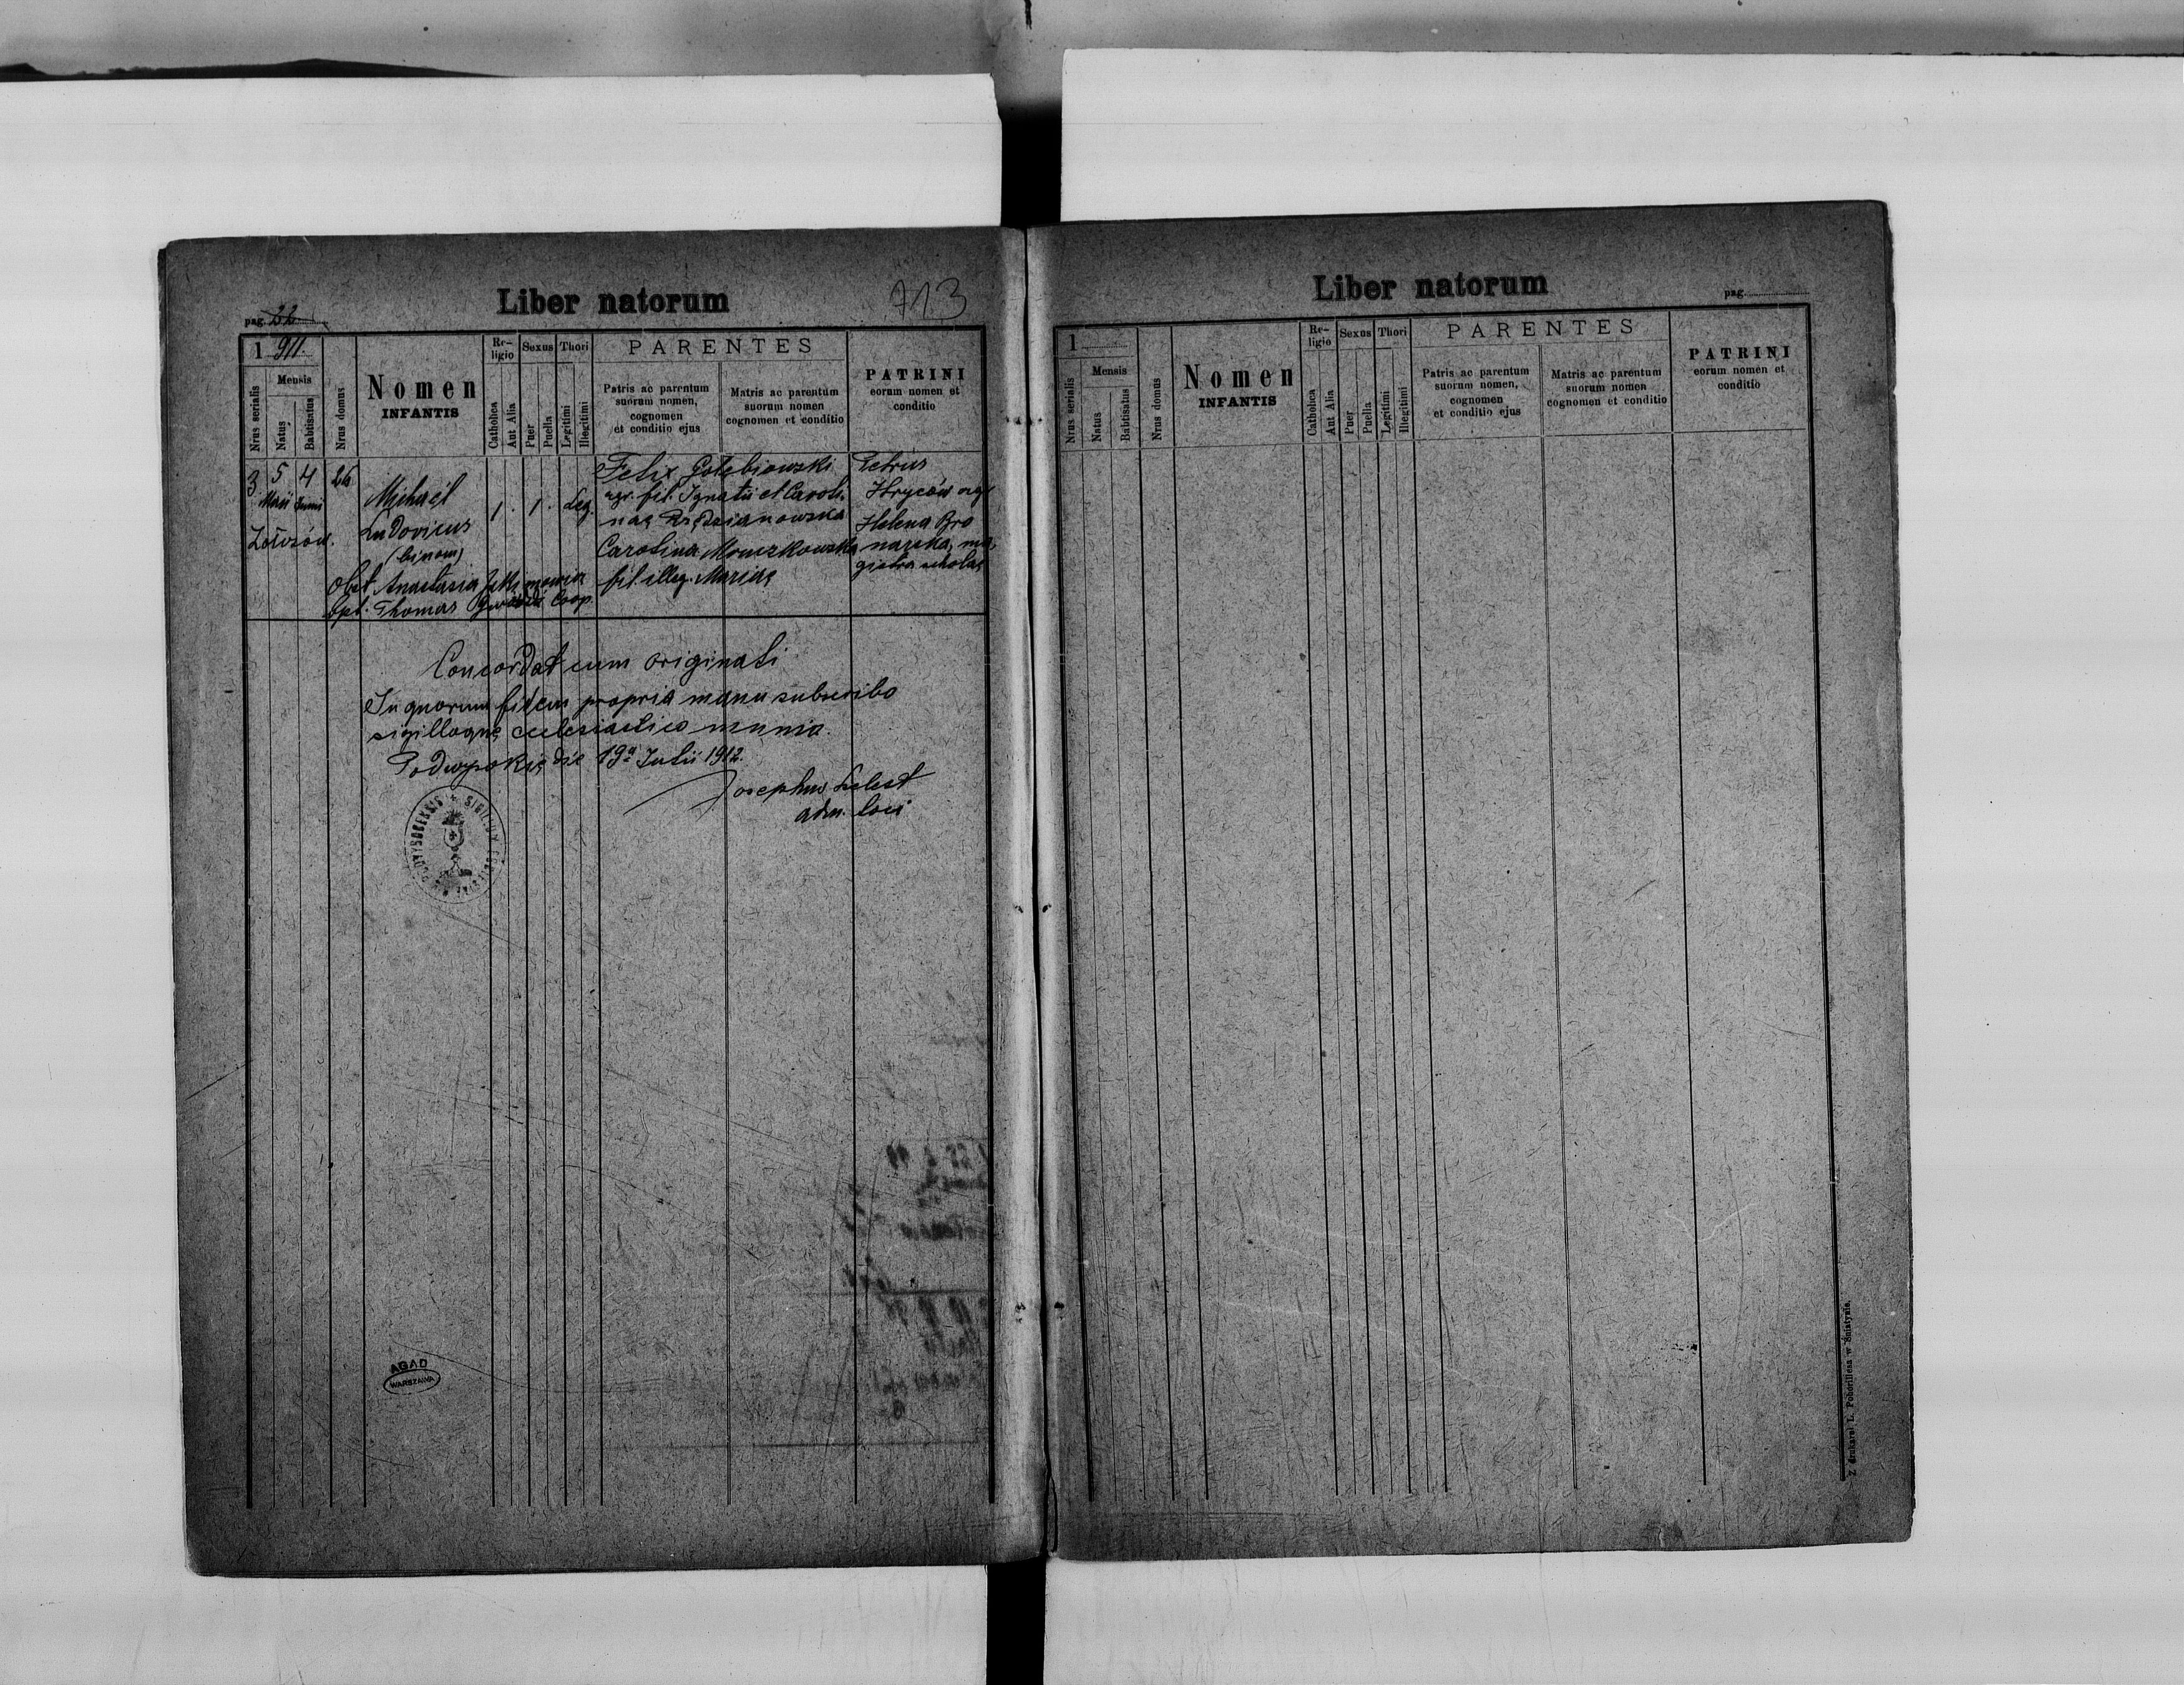 Liber natorum
713
pag. 22
1 911.
Nrus serialis
Mensis
Natus
Babtisatus
Nrus domus
Nomen
INFANTIS
Re-
ligio
Catholica
Aut Alia
Sexus
Puer
Puella
Thori
Legitimi
Illegitimi
PARENTES
Patris ac parentum
suorum nomen,
cognomen
et conditio ejus
Matris ac parentum
suorum nomen
cognomen et conditio
PATRINI
eorum nomen et
conditio
3 5 4 26
Maii Junii
Michaël
Ludovicus
(binom)
1. 1. Leg.
Felix Gołębiowski
agr. fil. Ignatii et Caroli-
nae
Carolina
fil. illeg. Mariae
Petrus
Hryców agr
Helena Bro
narska, ma-
gistra scholae
Obst. Anastasia
bpt. Thomas Coop.
Concordat cum originali
In quorum fidem propria manu subscribo
sigilloque ecclesiastico munio.
die 19a Julii 1912.
Josephus
adm. loci
AGAD
WARSZAWA
Liber natorum
pag.
1
Nrus serialis
Mensis
Natus
Babtisatus
Nrus domus
Nomen
INFANTIS
Re-
ligio
Catholica
Aut Alia
Sexus
Puer
Puella
Thori
Legitimi
Illegitimi
PARENTES
Patris ac parentum
suorum nomen,
cognomen
et conditio ejus
Matris ac parentum
suorum nomen
cognomen et conditio
PATRINI
eorum nomen et
conditio
Z drukarni L. w Śniatynie.